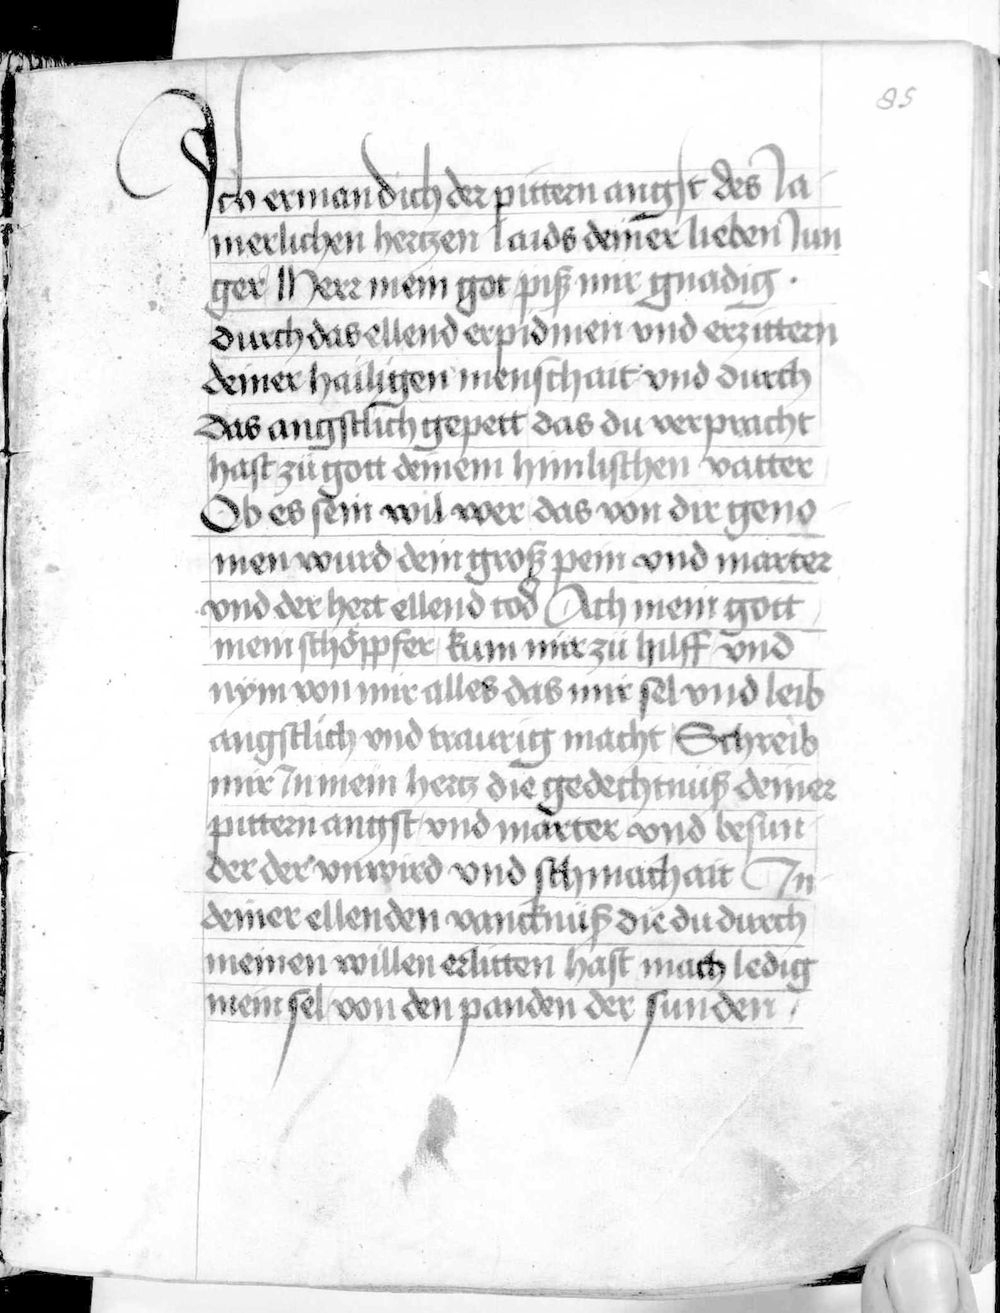 85
Ich erman dich der pittern angst des Ja
merlichen hertzen laids deiner lieben Jun
ger Herr mein got piß mir gnadig ·
durch das ellend erpidmen vnd erzittern
deiner hailigen menschait vnd durch
das angstlich gepett das du verpracht
hast zü gott deinem himlischen vatter
Ob es sein wil wer das von dir geno
men wurd dein groß pein vnd marter
vnd der hert ellend tod Ach mein gott
mein schöpffer kum mir zü hilff vnd
nym von mir alles das mir sel vnd leib
angstlich vnd traurig macht Schreib
mir In mein hertz die gedechtnüß deiner
pittern angst vnd marter vnd besun
der der vnwird vnd schmachait In
deiner ellenden vancknüß die du durch
meinen willen erlitten hast mach ledig
mein sel von den panden der sunden